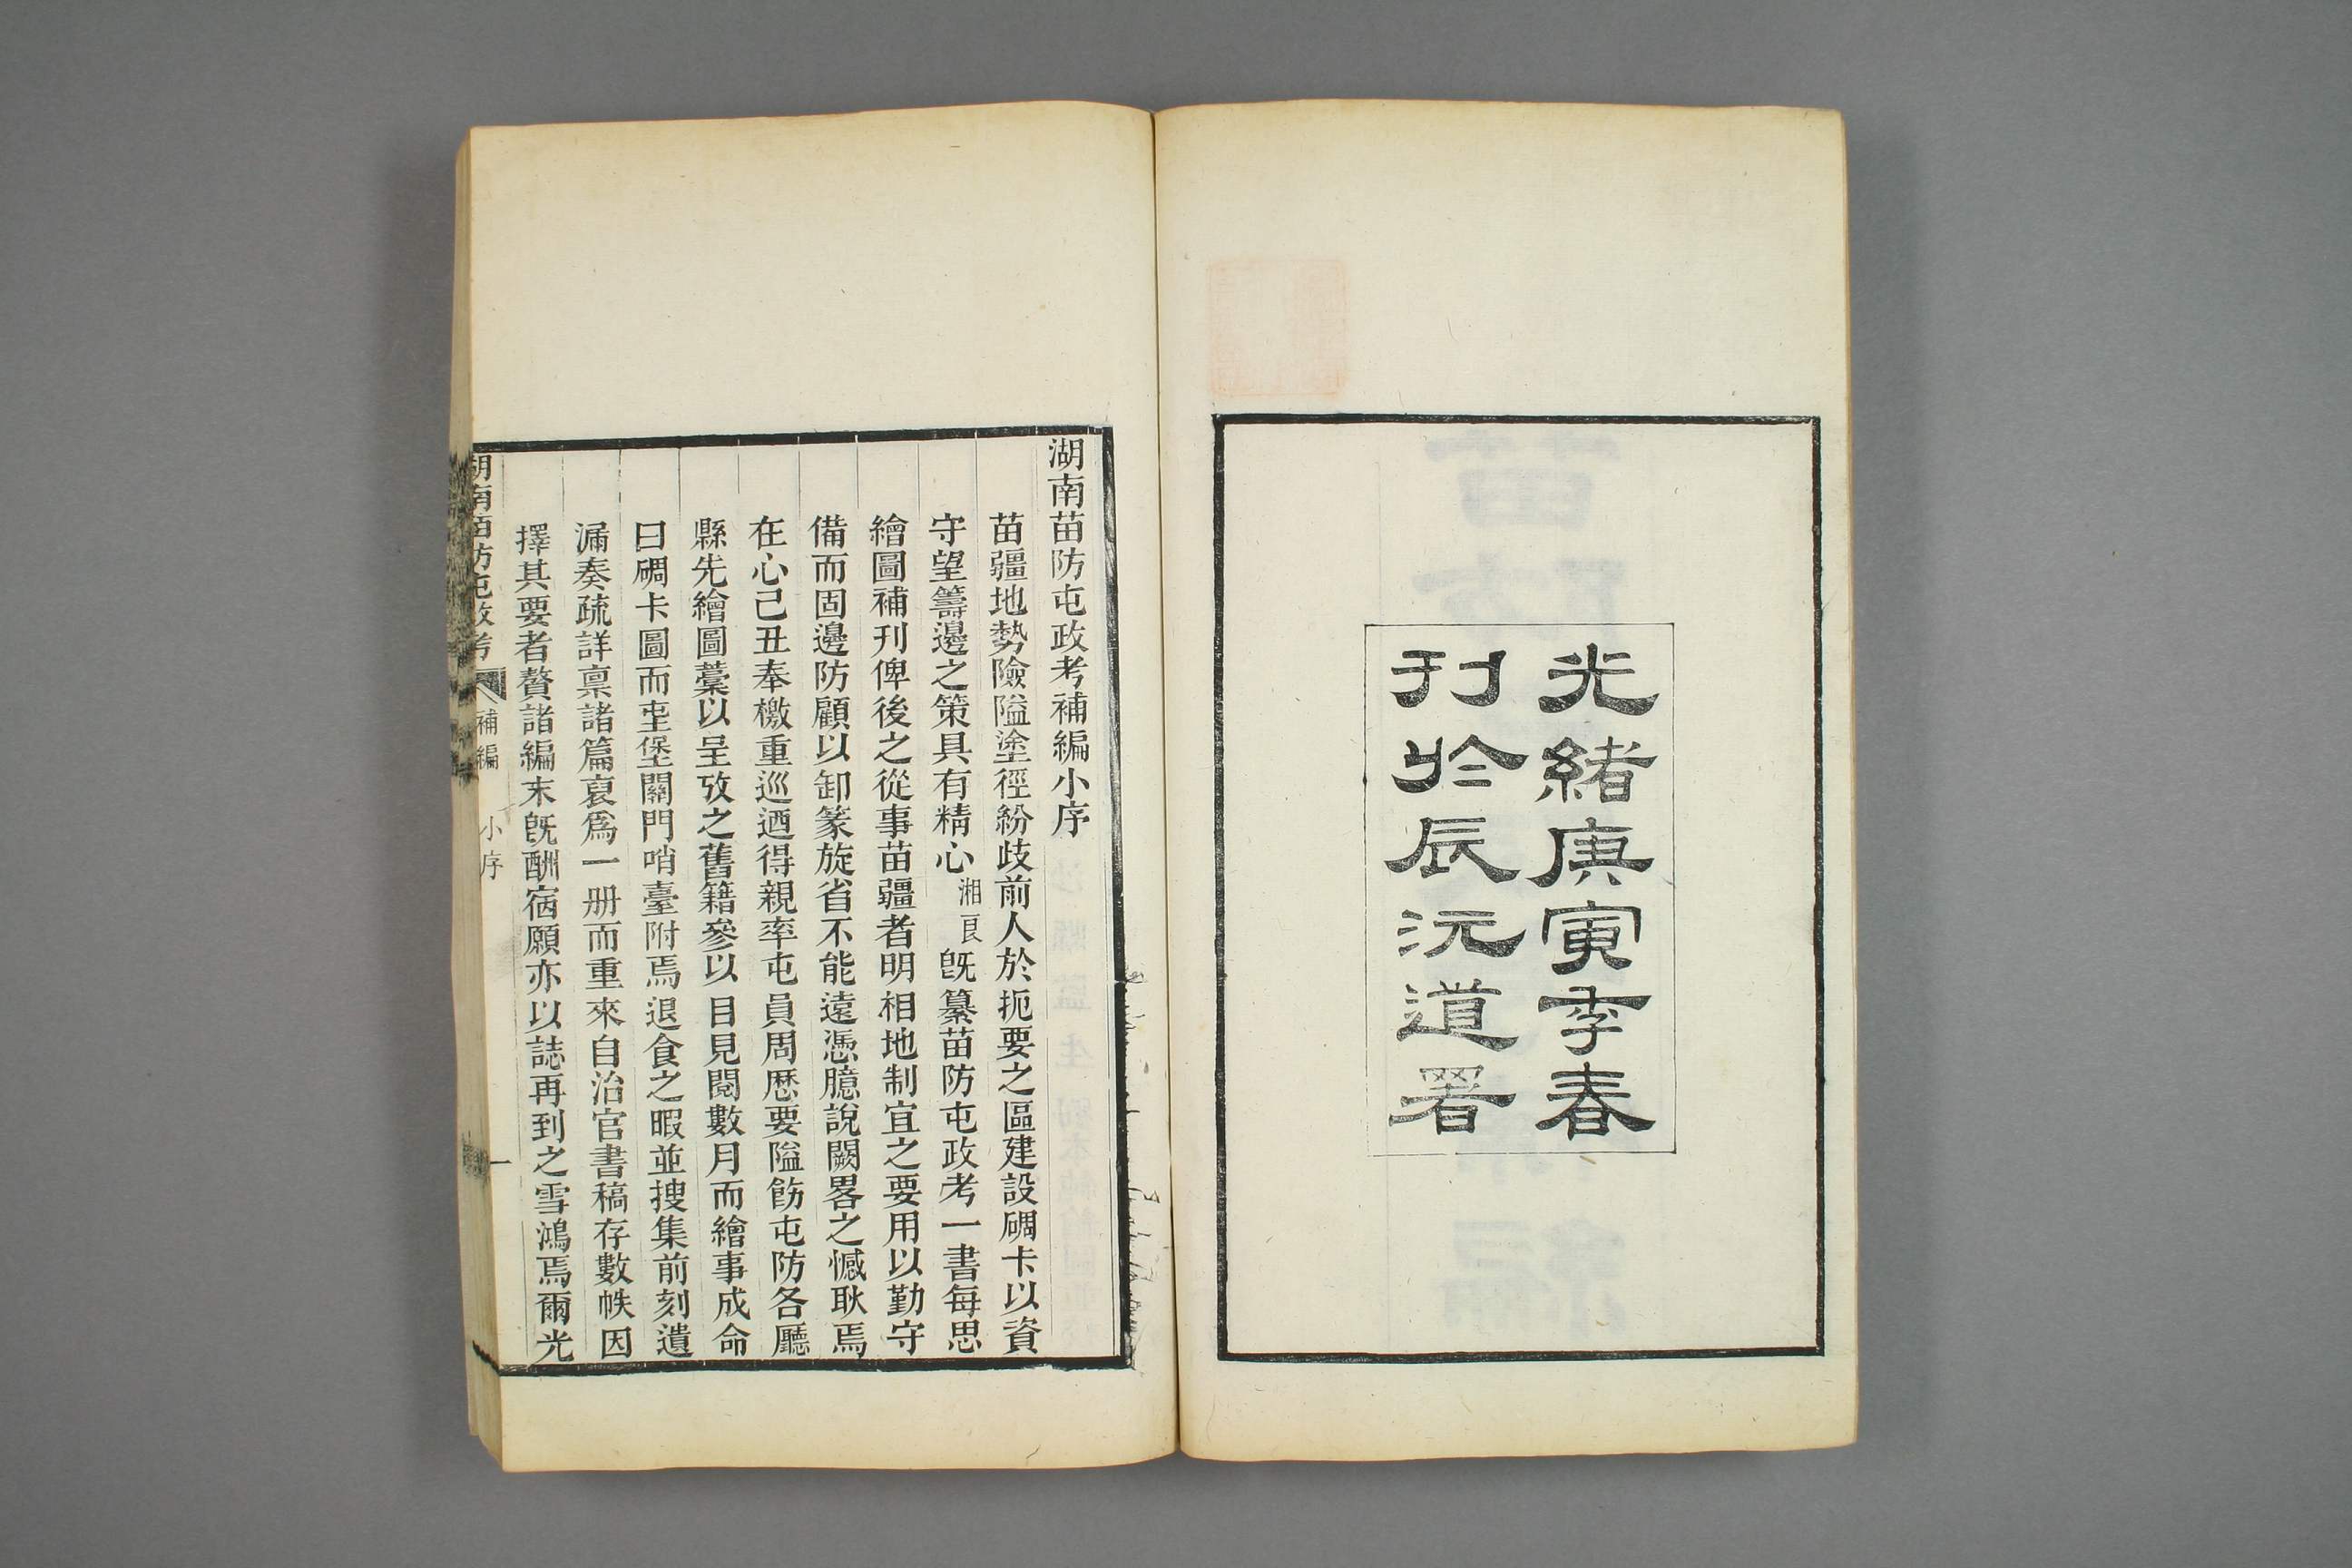 光緒庚寅季春
刊於辰沅道署
湖南苗防屯政考補編小序
苗疆地勢險隘塗徑紛歧前人於扼要之區建設碉卡以資
守望籌邊之策具有精心湘良旣纂苗防屯政考一書每思
繪圖補刊俾後之從事苗疆者明相地制宜之要用以勤守
備而固邊防顧以卸篆旋省不能遠憑臆說闕畧之憾耿焉
在心己丑奉檄重巡迺得親率屯員周歴要隘飭屯防各廳
縣先繪圖藳以呈攷之舊籍參以目見閱數月而繪事成命
曰碉卡圖而屯堡關門哨臺附焉退食之暇並搜集前刻遺
漏奏疏詳稟諸篇裒爲一册而重來自治官書稿存數帙因
擇其要者贅諸編末旣酬宿願亦以誌再到之雪鴻焉爾光
湖南苗防屯政考 補編 小序 一